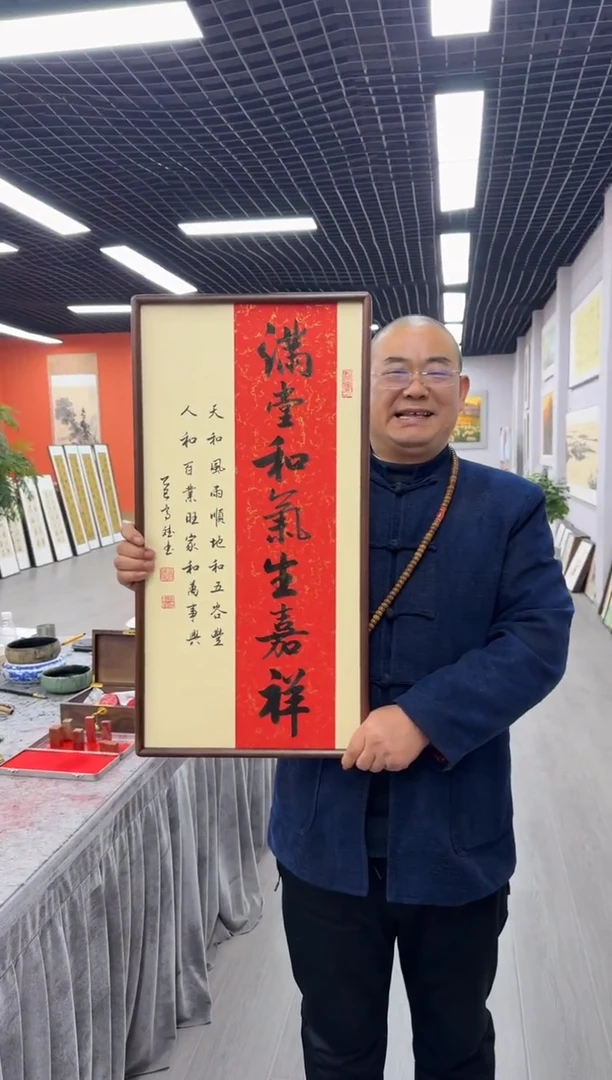 滿堂和氣生嘉祥
天和風雨順地和五谷豐
人和百業旺家和萬事興